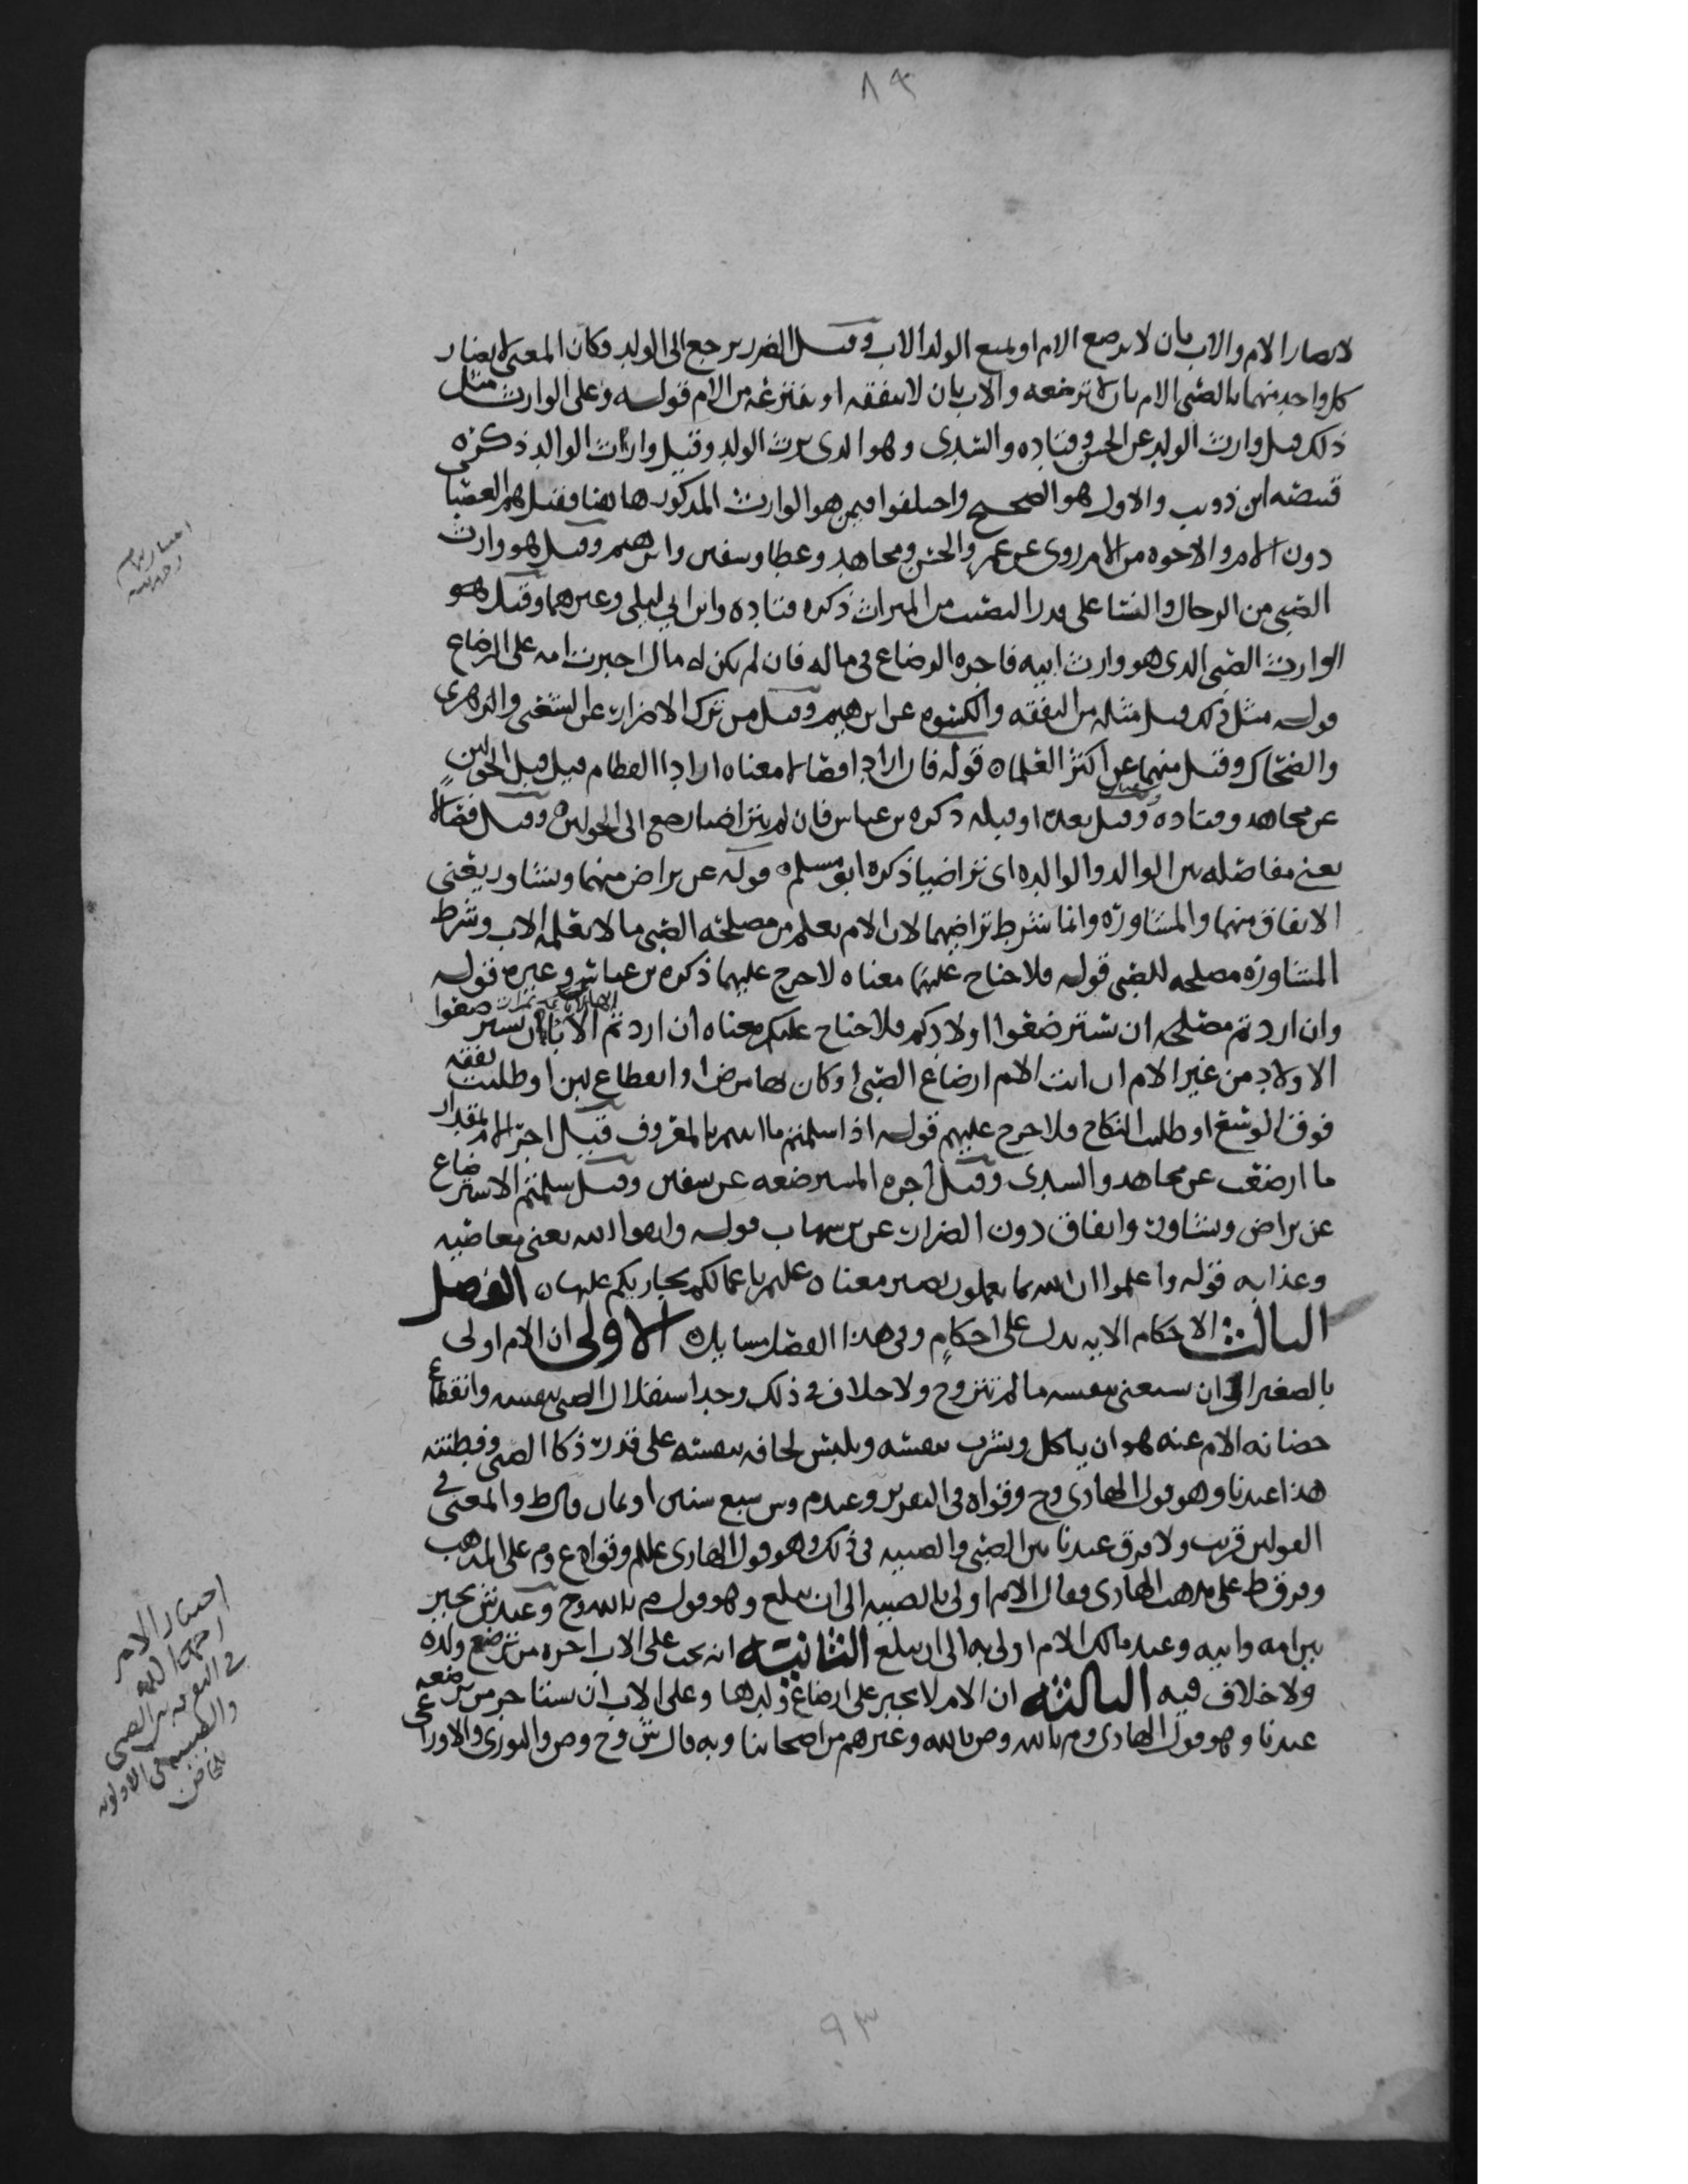 ٨٩
لا يضار الام والاب بان لا ترضع الام او يمنع الولد الاب وقيل الضرر يرجع الى الولد وكان المعنى لا يضار
كل واحد منهما بالصبي الام بان لا ترضعه والاب بان لا ينفقه او ينتزعه من الام قوله وعلى الوارث مثل
ذلك قيل وارث الولد عن الحسن وقتاده والسدى وهو الدى يرث الولد وقيل وارث الوالد ذكره
قبيصه ابن ذويب والاول هو الصحيح واختلفوا فيمن هو الوارث المذكور هاهنا فقيل هم العصبا
دون الام والاخوه من الام روى عن عمر والحسن ومجاهد وعطا وسفين وابرهيم وقيل هو وارث
الصبي من الرجال والنسا على قدر النصيب من الميراث ذكره قتاده وابن ابي ليلى وغيرهما وقيل هو
الوارث الصبي الدى هو وارث ابيه فاجره الرضاع في ماله فان لم يكن له مال اجبرت امه على الرضاع
قوله مثل ذلك قيل مثله من النفقه والكسوه عن ابرهيم وقيل من ترك الاضرار عن الشعبي والزهرى
والضحاك وقيل منهما عن اكثر العلماء قوله فان ارادا فصالا معناه ارادا الفطام قبل الحولين
عن مجاهد وقتاده وقيل بعده او قبله ذكره بن عباس فان لم يتراضيا رجع الى الحولين وقيل فصالا
يعني مفاصله بين الوالد والوالده اى تراضيا ذكره ابو مسلم قوله عن تراض منهما وتشاور يعنى
الاتفاق منهما والمشاورة وانما شرط تراضيهما لان الام تعلم من مصلحه الصبي ما لا يعلمه الاب وشرط
المشاورة مصلحه للصبي قوله فلا جناح عليهما معناه لا حرج عليهما ذكره بن عباس وغيره قوله
وان اردتم مصلحه ان تسترضعوا اولادكم فلا جناح عليكم معناه ان اردتم الاباء ان تسترضعوا
الاولاد من غير الام ان ابت الام ارضاع الصبي او كان لها مرض او انقطاع لبن او طلبت نفقه
فوق الوسع او طلبت النكاح فلا حرج عليهم قوله اذا سلمتم ما اتيتم بالمعروف قيل اجر الام بمقدار
ما ارضعت عن مجاهد والسدى وقيل اجره المسترضعه عن سفين وقيل سلمتم الاسترضاع
عن تراض وتشاور واتفاق دون الضرار عن بن شهاب قوله واتقوا الله يعنى معاصيه
وعذابه قوله واعلموا ان الله بما تعملون بصير معناه عليم باعمالكم يجازيكم عليها الفصل
الثالث الاحكام الايه تدل على احكام وفي هذا الفصل مسايل الاولى ان الام اولى
بالصغير الى ان يستغنى بنفسه ما لم تتزوج ولا خلاف في ذلك وحد استقلال الصبي بنفسه وانقطاع
حضانه الام عنه هو ان ياكل ويشرب بنفسه ويلبس لحافه بنفسه على قدر ذكا الصبي وفطنته
هذا عندنا وهو قول الهادى وح وقواه في التحرير وعندم وش سبع سنين او ثمان وقال ط والمعنى في
القولين قريب ولا فرق عندنا بين الصبي والصبيه في ذلك وهو قول الهادى علم وقواه ع وم على المذهب
وفرق ط على مذهب الهادى فقال الام اولى بالصبيه الى ان تبلغ وهو قول م بالله وح وعند ش يخير
بين امه وابيه وعند مالك الام اولى به الى ان يبلغ الثانيه انه يجب على الاب اجره من ترضع ولده
ولا خلاف فيه الثالثه ان الام لا تجبر على ارضاع ولدها وعلى الاب ان يستاجر من ترضعه
عندنا وهو قول الهادى وم بالله وص بالله وغيرهم من اصحابنا وبه قال ش وح وص والثورى والاوزاعى
اختيار الامر
في الفرق بين الصبي
والصبيه في الاولويه
٩٣